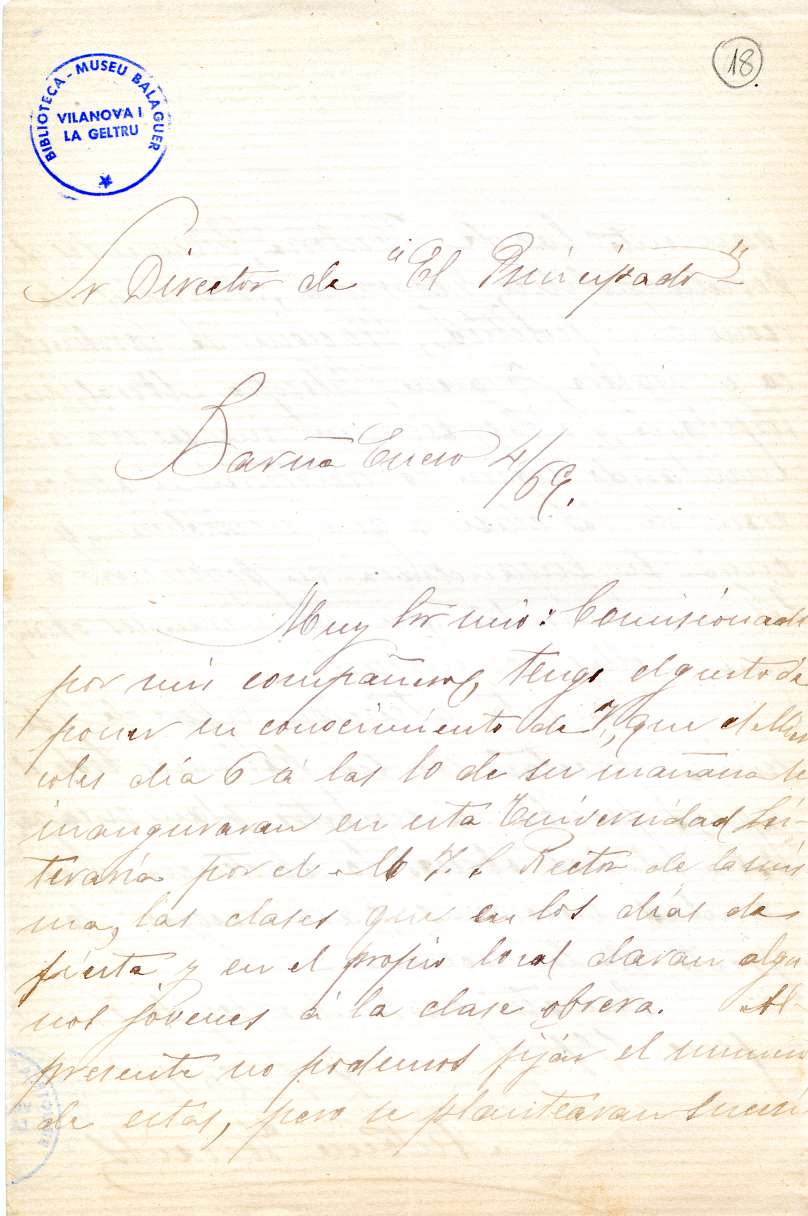 18.
BIBLIOTECA - MUSEU BALAGUER
VILANOVA I
LA GELTRU
Sr Director de "El Principado"
Barna Enero 4/69.
Muy Sr mio: Comisionado
por mis compañeros, tengo el gusto de
poner en conocimiento de V, que el Mier
coles dia 6 á las 10 de su mañana se
inauguraran en esta Universidad Li
teraria por el M Y. S Rector de la mis
ma, las clases que en los dias de
fiesta y en el propio local daran algu
nos jovenes á la clase obrera. Al
presente no podemos fijar el numero
de estas, pero se plantearan